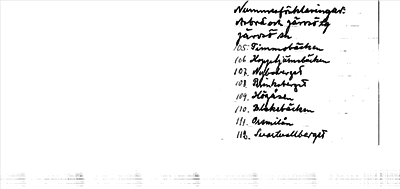 Nummerförklaringar.
Arbrå och Järvsö sg
Järvsö sn
105. Timmobäcken
106. Hoppetjärnsbäcken
107. Nyboberget
108. Brinkeberget
109. Högåsen
110. Blekebäcken
111. Gromilån
112. Svartvallberget